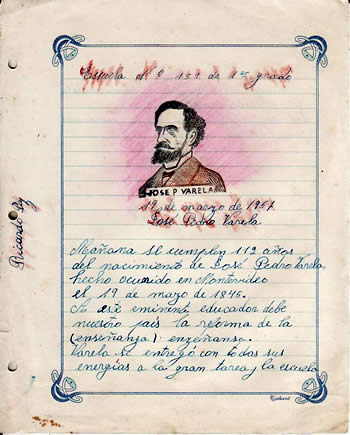 Escuela Nº 153 de 1er grado
JOSE P VARELA
19 de marzo de 1957
José Pedro Varela
Mañana se cumplen 112 años
del nacimiento de José Pedro Varela,
hecho ocurrido en Montevideo
el 19 de marzo de 1845.
A este eminente educador debe
nuestro país la reforma de la
(enseñanza) enzeñansa.
Varela se entregó con todas sus
energías a la gran tarea, la escuela
Ricardo